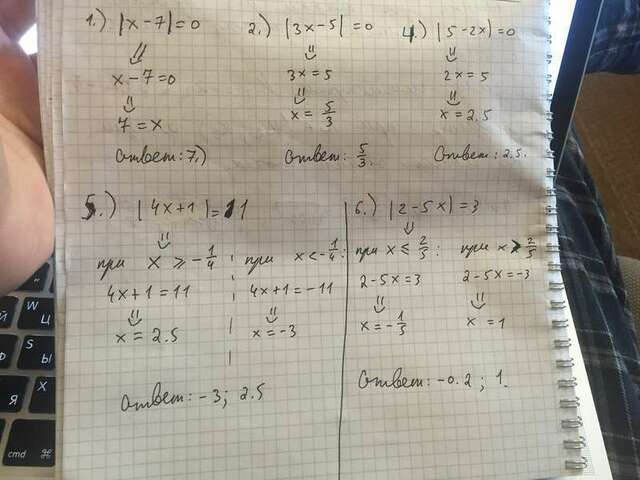 1.) |x-7|=0
⇓
x-7=0
⇓
7=x
ответ: 7.)
2.) |3x-5|=0
⇓
3x=5
⇓
x=5/3
ответ: 5/3.
4.) |5-2x|=0
⇓
2x=5
⇓
x=2.5
ответ: 2.5.
5.) |4x+1|=11
⇓
при x ⩾ -1/4
4x+1=11
⇓
x=2.5
при x<-1/4:
4x+1=-11
⇓
x=-3
ответ: -3; 2.5
6.) |2-5x|=3
⇓
при x ⩽ 2/5:
2-5x=3
⇓
x=-1/5
при x > 2/5
2-5x=-3
⇓
x=1
ответ: -0.2; 1.
W
Й Ц
S
Ы
X
Я
cmd ⌘